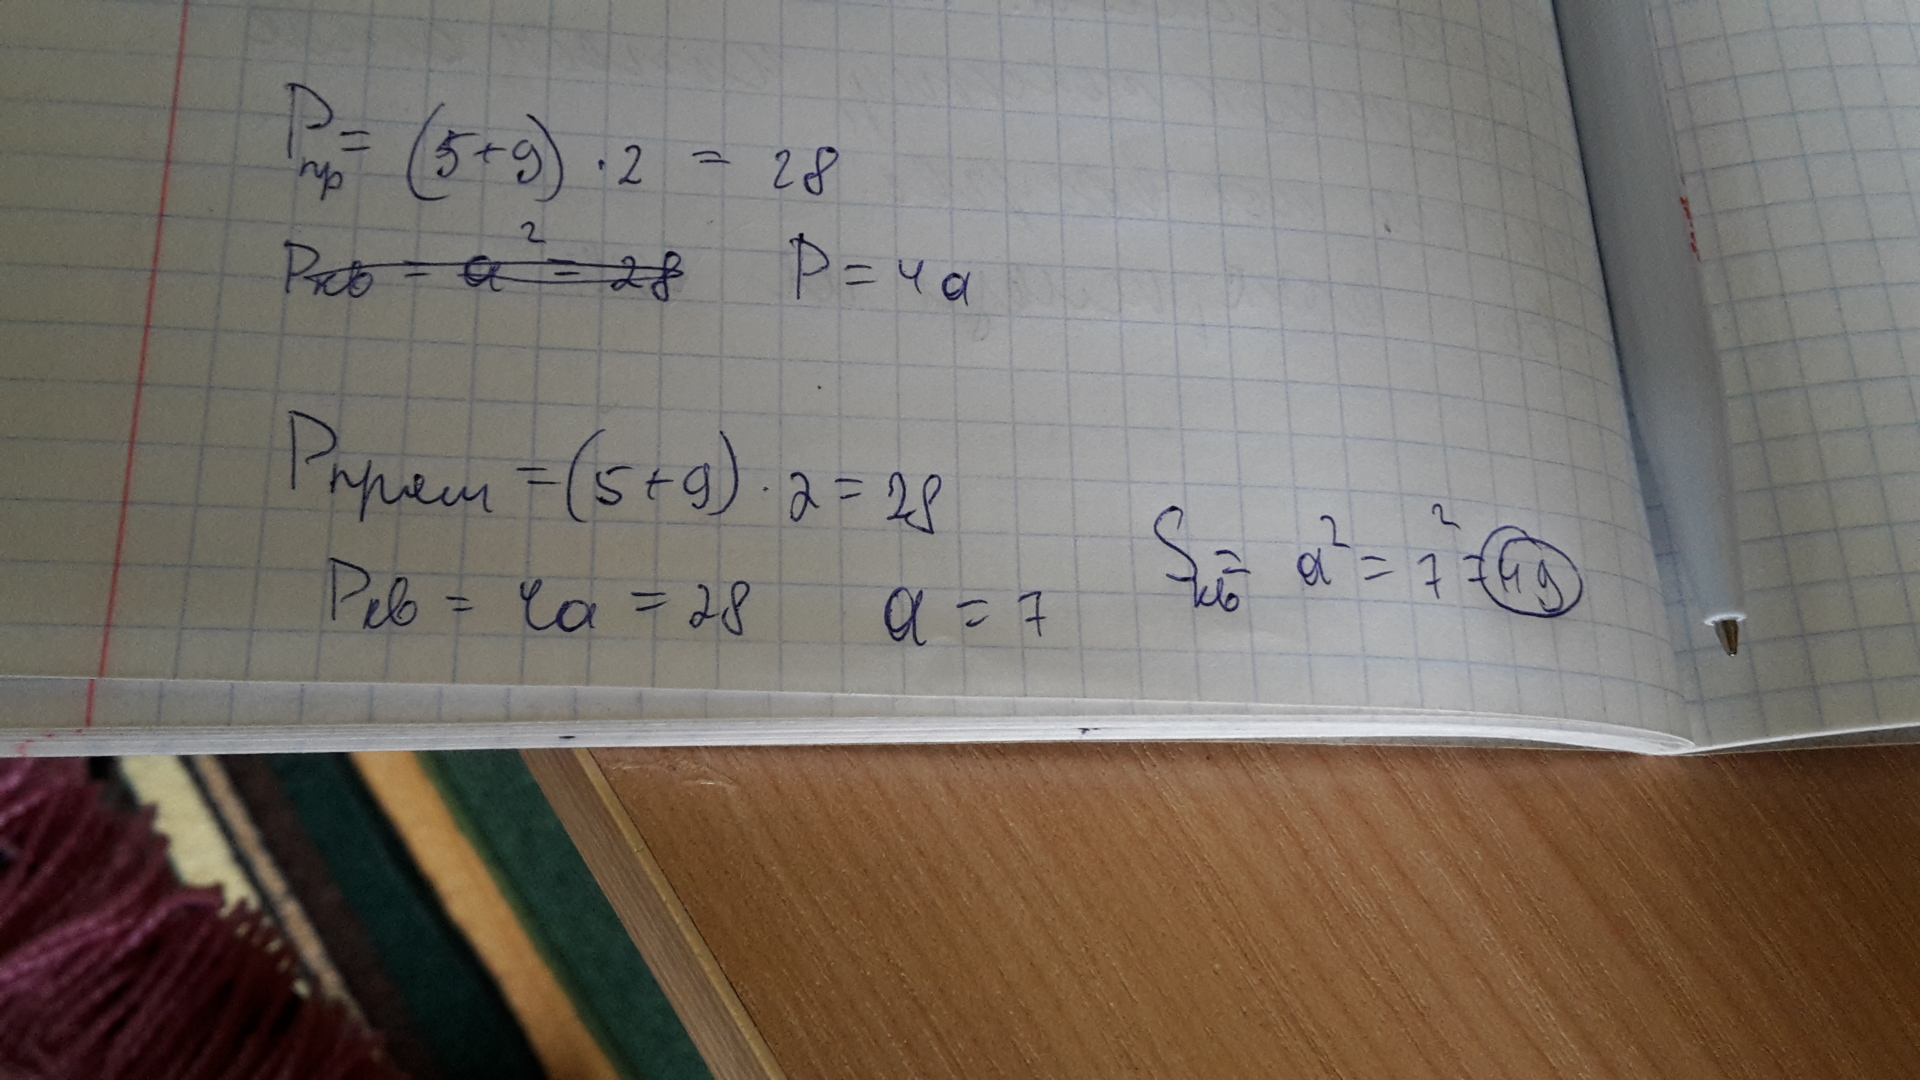 Pпр = (5+9) · 2 = 28
Pкв = a² = 28 P = 4a
Pпрям = (5+9) · 2 = 28
Pкв = 4a = 28 a = 7 Sкв = a² = 7² = 49